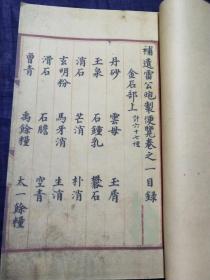 補遺雷公炮製便覽卷之一目錄
金石部上 計六十七種
丹砂 雲母 玉屑
玉泉 石鐘乳 礬石
消石 芒消 朴消
玄明粉 馬牙消 生消
滑石 石膽 空青
曾青 禹餘糧 太一餘糧